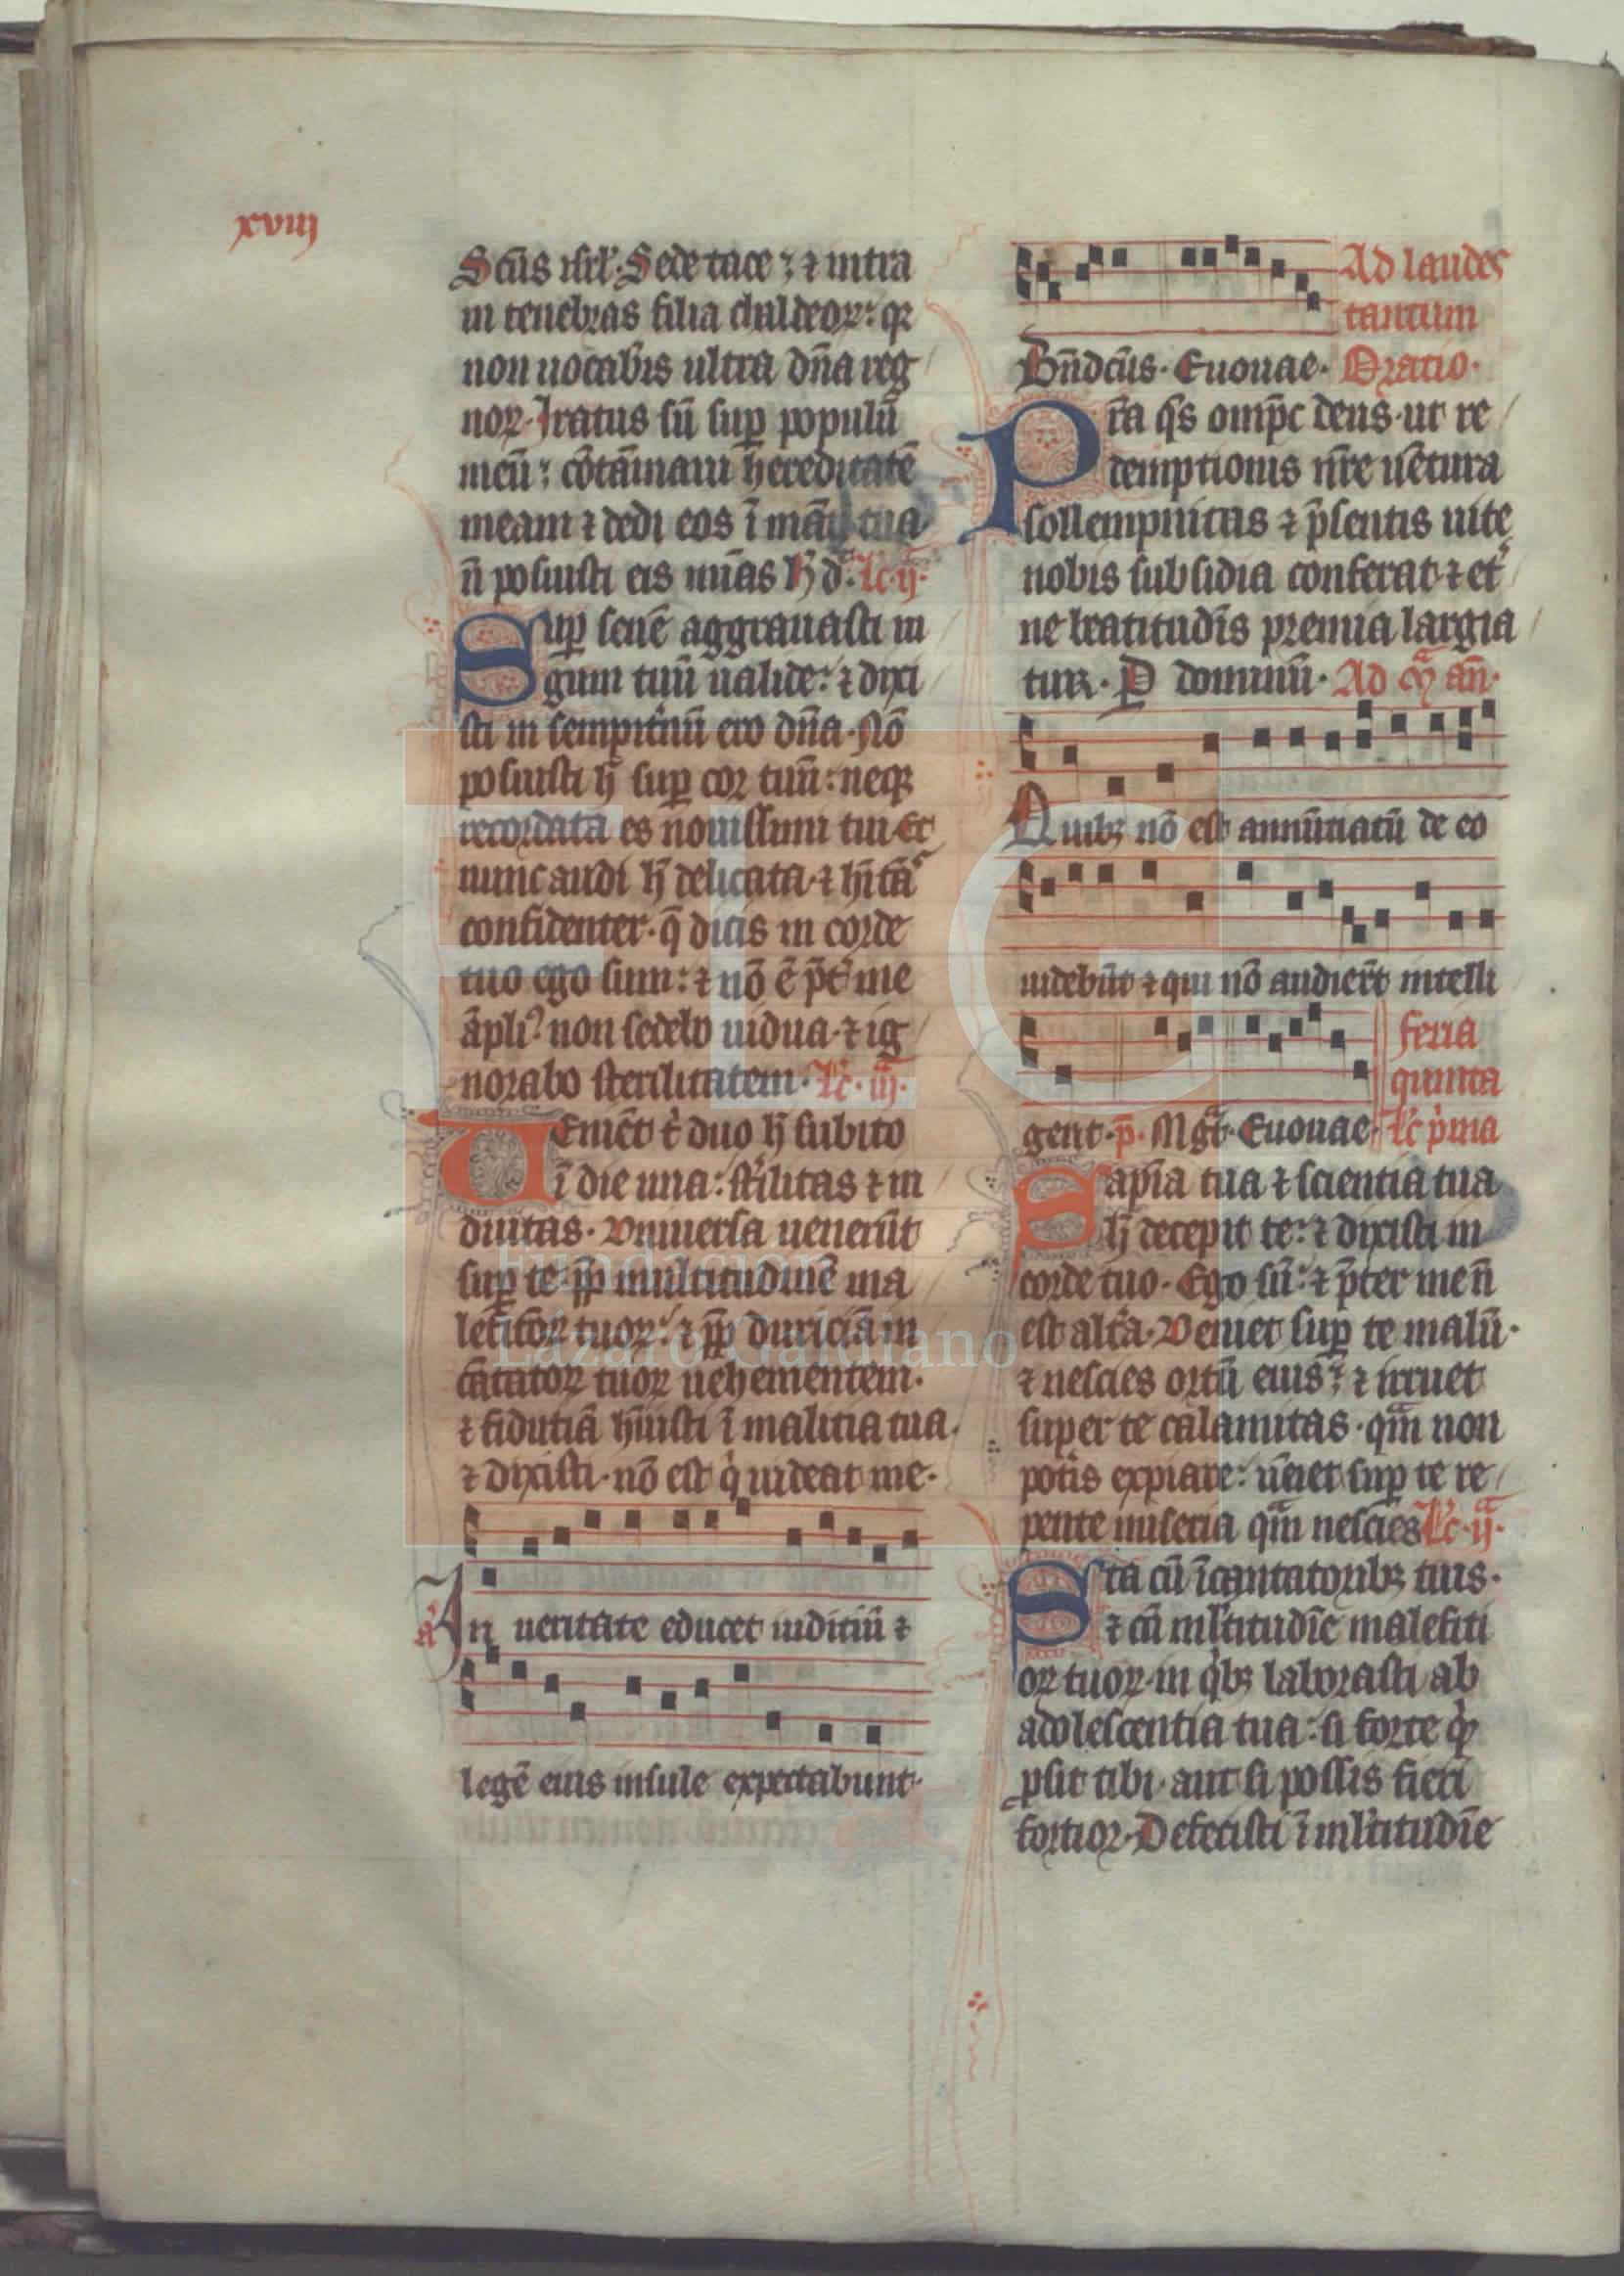 xviij
Scūs isrl'. Sede tace ⁊ intra
in tenebras filia chaldeoꝝ: qꝛ
non uocab̄is ultra dn̄a reg
noꝝ. Iratus sū suꝑ populū
meū: cōtāminaui hereditatē
meam ⁊ dedi eos ī mā tua
n̄ posuisti eis mīas h̄ d̄. Lc̄. ij.
Suꝑ senē aggrauasti iu
gum tuū ualide: ⁊ dixi
sti in sempit̄nū ero dn̄a. Nō
posuisti h̄ suꝑ cor tuū: neqꝫ
recordata es nouissimi tui. Et
nunc audi h̄ delicata. ⁊ hītās
confidenter. q̄ dicis in corde
tuo ego sum: ⁊ nō ē p̄t me
āpli⁹ non sedebo uidua. ⁊ ig
norabo sterilitatem. Lc̄. iij.
Ueniēt t̄ duo h̄ subito
ī die una: st̄ilitas ⁊ ui
duitas. Vniuersa uenerūt
suꝑ te. ꝓp̄ multitudinē ma
lefitioꝝ tuoꝝ: ⁊ ꝓp̄ duriciā in
cātatoꝝ tuoꝝ uehementem.
⁊ fidutiā h̄uisti ī malitia tua.
⁊ dixisti. nō est q̇ uideat me.
an̄ In ueritate educet iuditiū ⁊
legē eius insule expectabunt.
Ad laudes
tantum
Bn̄dcūs. Euouae. Oratio.
Pr̄a qs̄ omp̄c deus. ut re
demptionis nr̄e uētura
sollempnitas ⁊ p̄sentis uite
nobis subsidia conferat. ⁊ et
ne beatitudīs premia largia
tur. P̄ dominū. Ad m̄ an̄.
Quibꝫ nō est annūtiatū de eo
uidebūt ⁊ qui nō audierūt intelli
feria
quinta
gent. p̄. Mgt̄. Euouae. Lc̄ p̄ma
Sapīa tua ⁊ scientia tua
h̄ decepit te: ⁊ dixisti in
corde tuo. Ego sū: ⁊ p̄ter me n̄
est alt̄a. Veniet suꝑ te malū.
⁊ nescies ortū eius: ⁊ irruet
super te calamitas. qm̄ non
pot̄is expiare: uēiet suꝑ te re
pente miseria qm̄ nescies Lc̄. ij.
Sta cū īcantatoribꝫ tuis.
⁊ cū ml̄titudīe malefiti
oꝝ tuoꝝ. in q̇bꝫ laborasti ab
adolescentia tua: si forte q̇d
ꝓsit tibi. aut si possis fieri
fortior. Defecisti ī ml̄titudīe
Fundación
Lázaro Galdiano
FLG